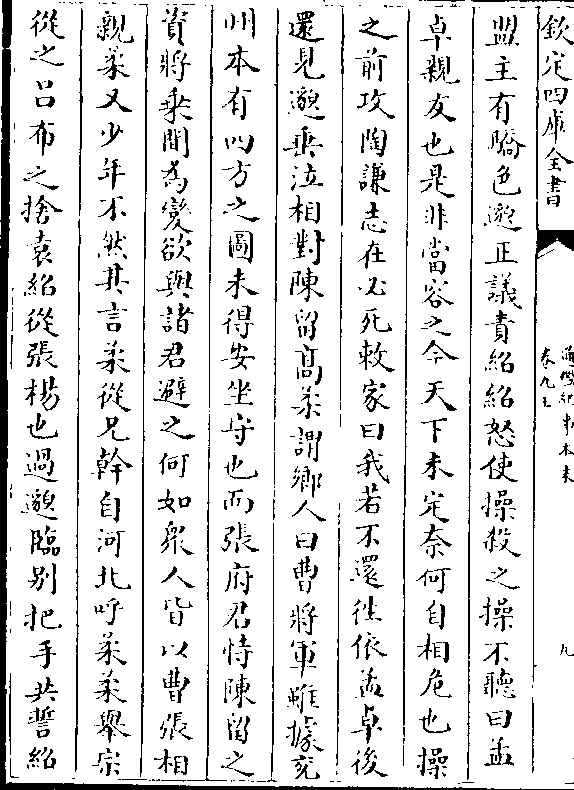 欽定四庫全書
通鑑紀事本末
卷九上
九
盟主有驕色邈正議責紹紹怒使操殺之操不聽曰孟
卓親友也是非當容之今天下未定奈何自相危也操
之前攻陶謙志在必死敕家曰我若不還徃依孟卓後
還見邈垂泣相對陳留髙柔謂鄉人曰曹將軍雖據兖
州本有四方之圖未得安坐守也而張府君恃陳留之
資將乘間為變欲與諸君避之何如衆人皆以曹張相
親柔又少年不然其言柔從兄幹自河北呼柔柔舉宗
從之吕布之捨袁紹從張楊也過邈臨别把手共誓紹